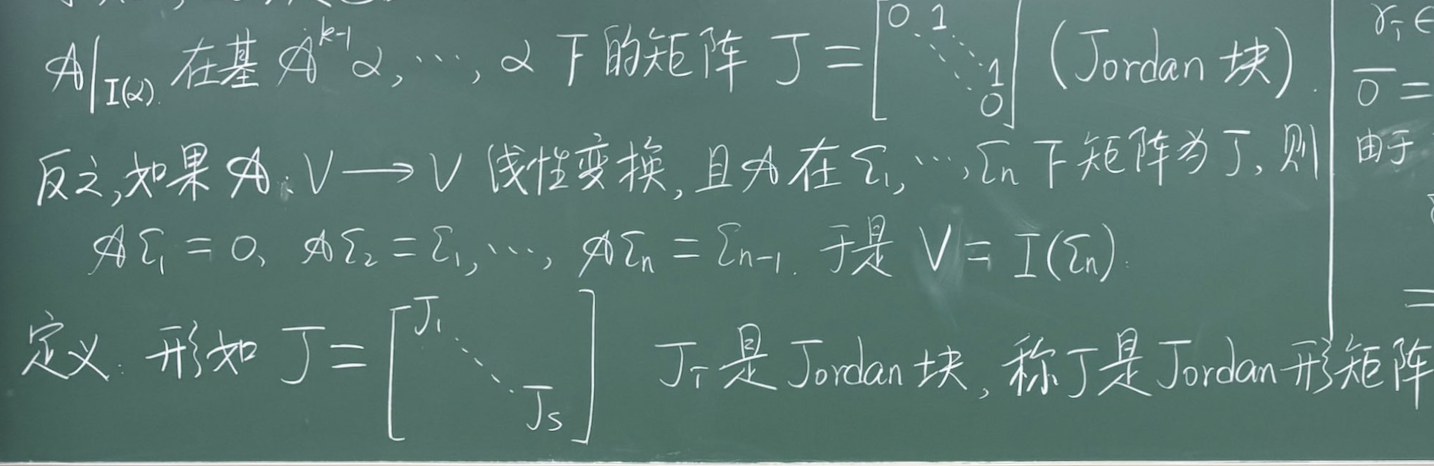 𝒜|_{I(α)} 在基 𝒜^{k-1}α, ⋯, α 下的矩阵 J = [0 1 ⋱ ⋱ 1 0] (Jordan 块).
反之,如果 𝒜: V ⟶ V 线性变换, 且 𝒜 在 ε₁, ⋯, εn 下矩阵为 J, 则
𝒜ε₁ = 0, 𝒜ε₂ = ε₁, ⋯, 𝒜εn = εn-1. 于是 V = I(εn).
定义: 形如 J = [J₁ ⋱ Js] Ji 是 Jordan 块, 称 J 是 Jordan 形矩阵
γi ∈
0̅ =
由于
=